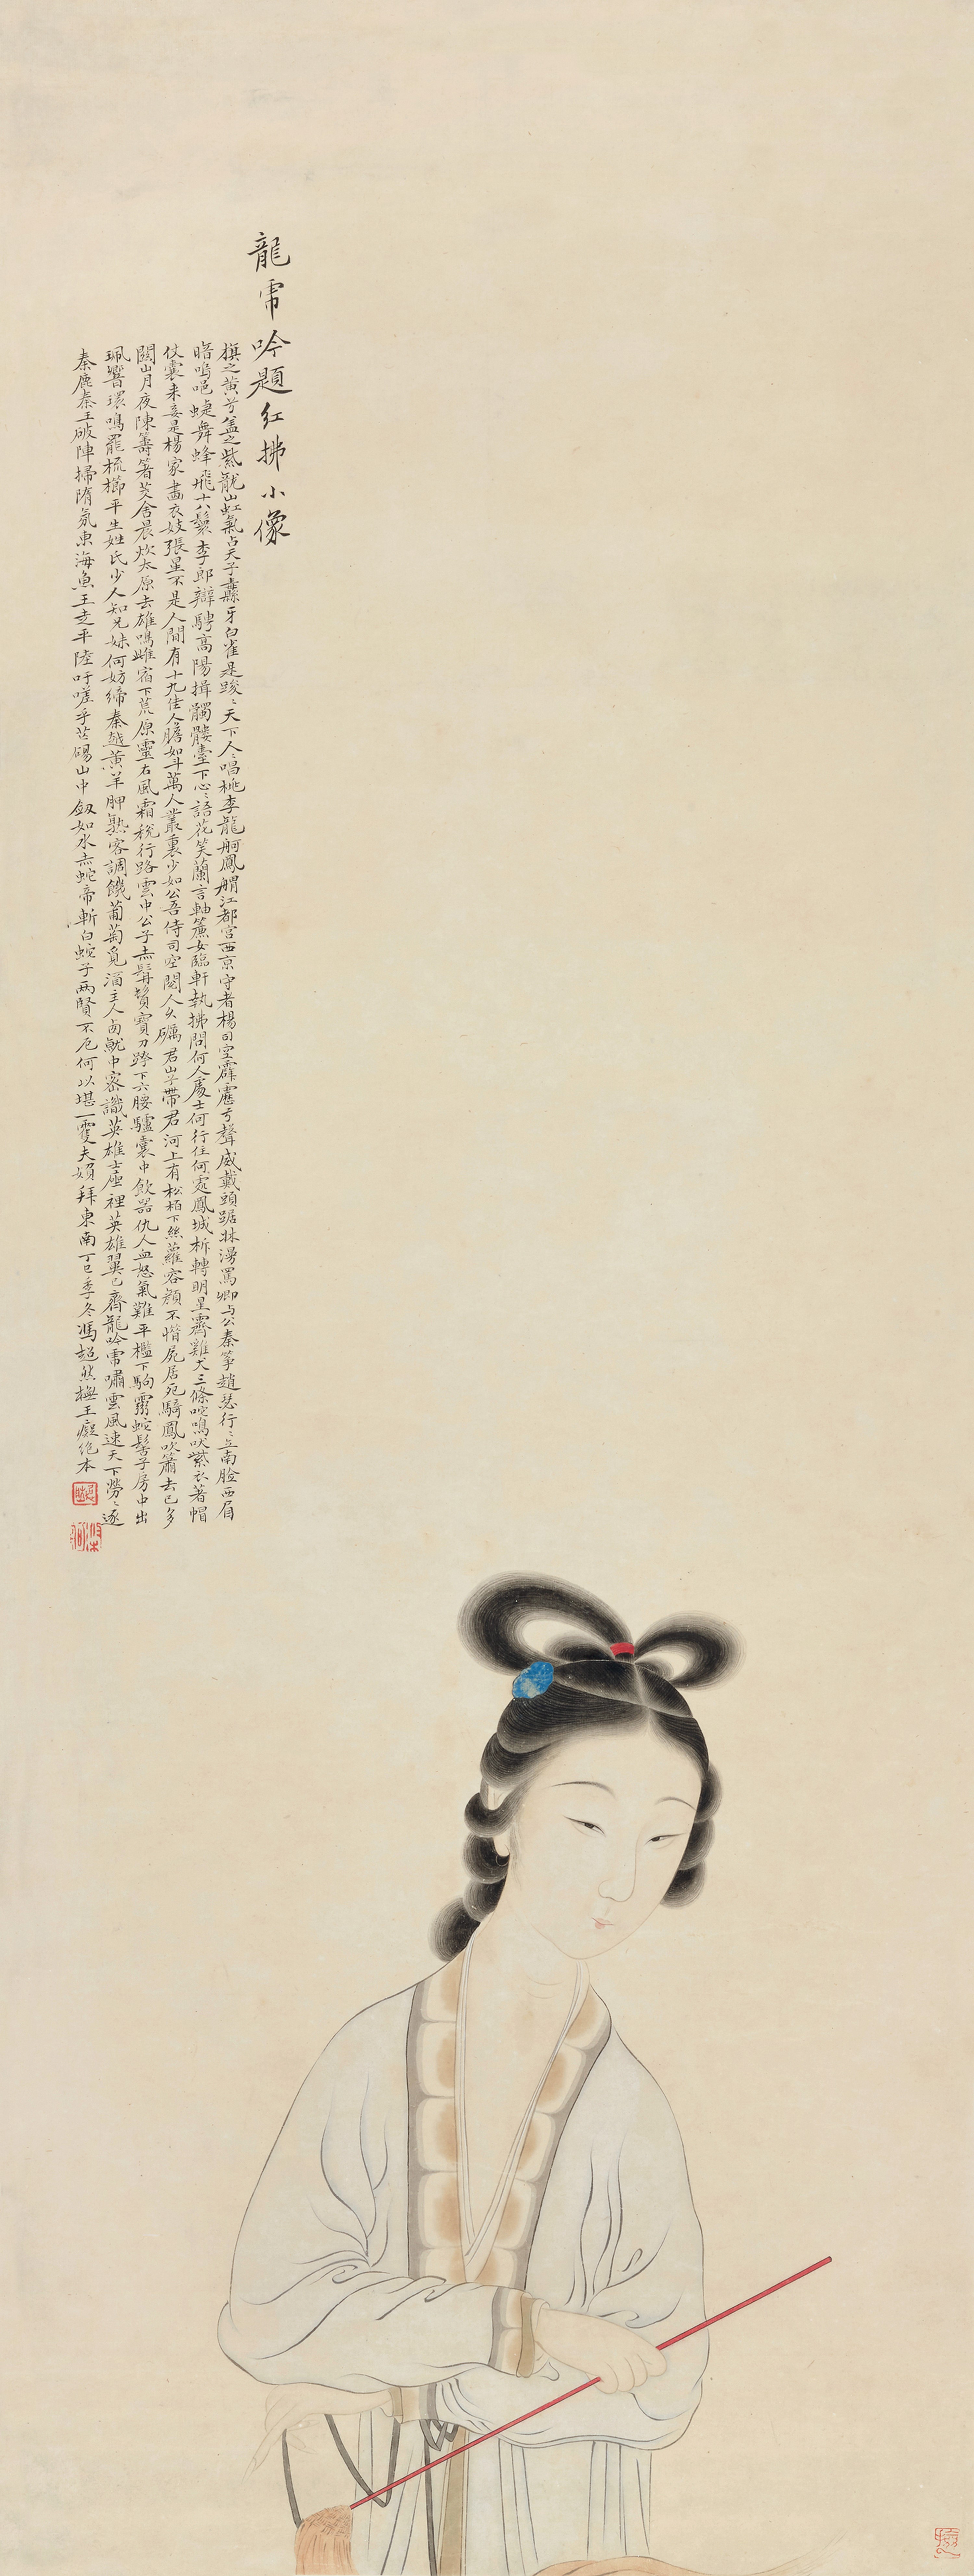 龍虎吟題紅拂小像
旗之黃兮蓋之紫龍山虹氣占天子纛牙白雀是踆踆天下人人唱桃李龍舸鳳艒江都宮西京守者楊司空霹靂聲威戴頭踞牀漫罵卿與公秦箏趙瑟行行立南臉西眉
喑嗚唈蜨舞蜂飛十八鬟李郎辯騁高陽揖髑髏臺下心心語花笑蘭言軸簾女臨軒執拂問何人處士何行住何處鳳城柝轉明星霽雞犬三條咤鳴吠紫衣著帽
仗囊來妾是楊家畫衣妓張星不是人間有十九佳人膽如斗萬人叢裏少如公吾侍司空閱人久礪君山子帶君河上有松栢下絲蘿容顏不惜屍居死騎鳳吹簫去已多
關山月夜陳籌箸茭舍晨炊太原去雄鳴雌宿下荒原靈石風霜稅行路雲中公子赤髯鬢寶刀跨下六腰驢囊中飲器仇人血怒氣難平檻下駒霧蛇髻子房中出
珮響環鳴罷梳櫛平生姓氏少人知兄妹何妨締秦越黃羊胛熟客調饑葡萄覓酒主人卣魷中密識英雄士座裡英雄翼已齊龍吟虎嘯雲風速天下勞勞逐
秦鹿秦王破陣掃隋氛東海魚王走平陸吁嗟乎芒碭山中劍如水赤蛇帝斬白蛇子兩賢不厄何以堪一雙夫婦拜東南丁巳季冬馮超然橅王癡絕本